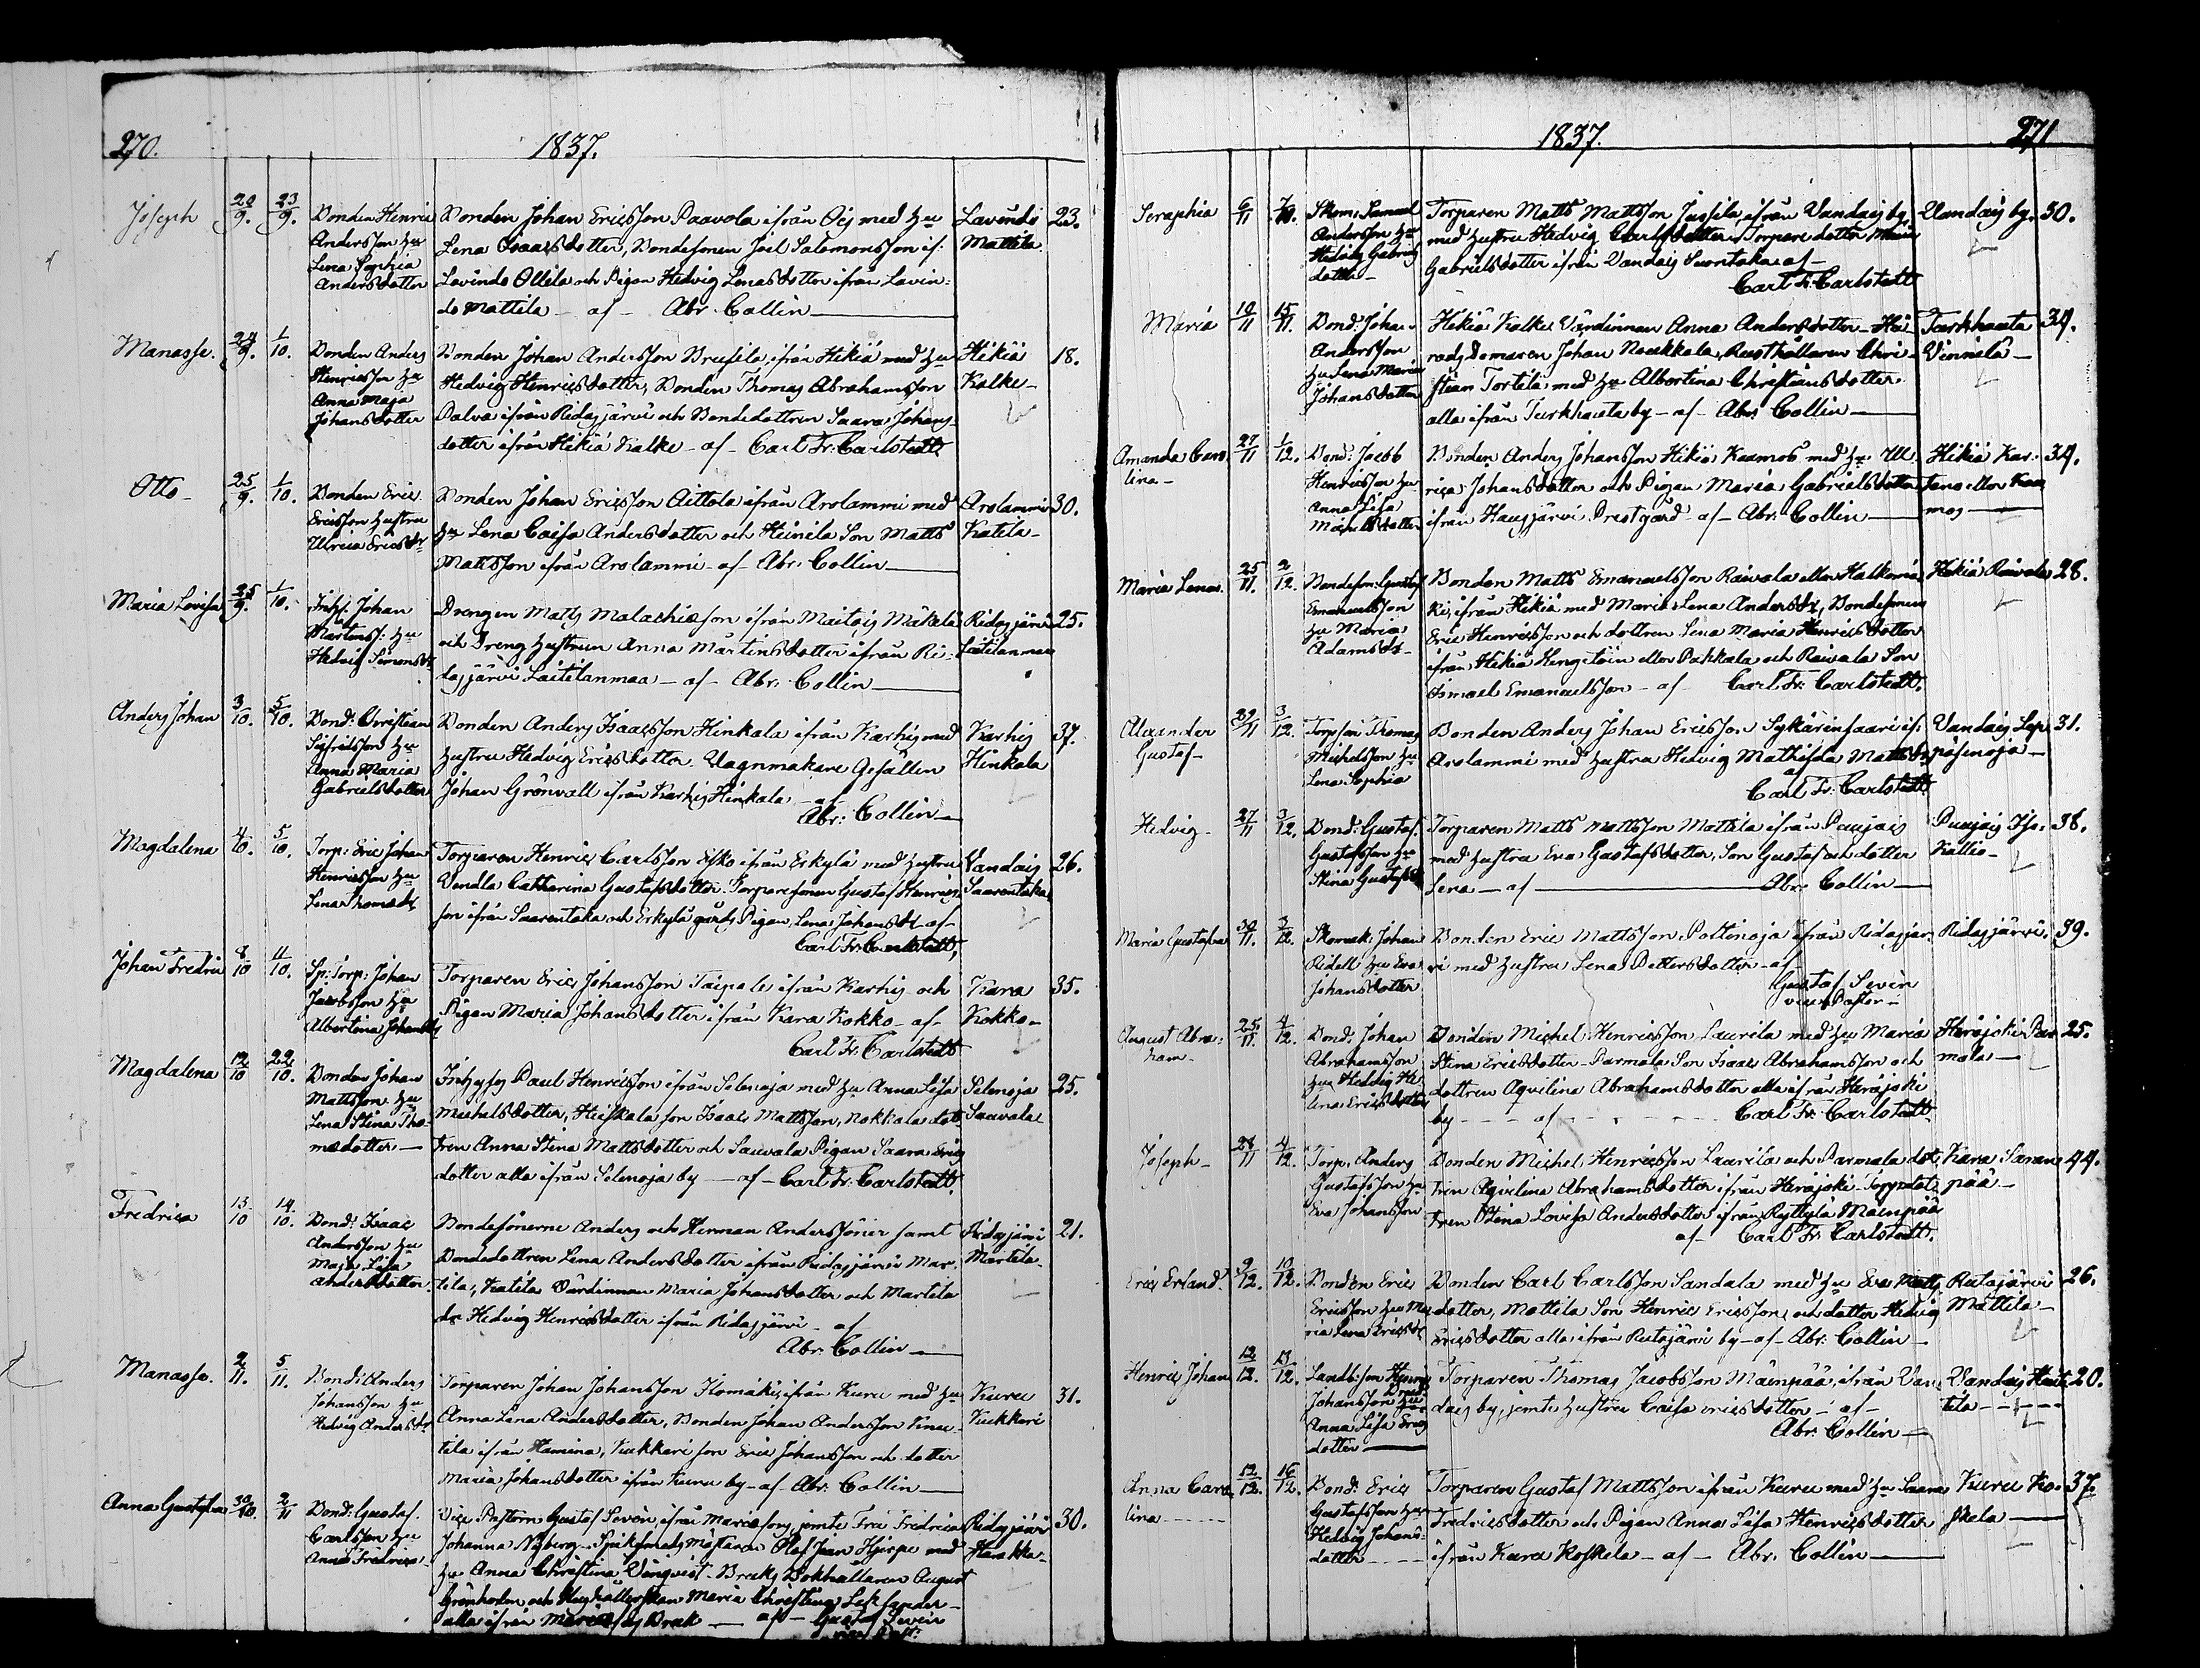 270.
1837.
Joseph 20/9. 23/9. Bonden Henric Bonden Johan Ericsson Paavola ifrån Oij med Hu Lavindo 23.
Andersson Hu Lena Isaacsdotter, Bondesonen Joel Salomonsson if: Mattila
Lena Sophia Lavindo Ollila och Pigan Hedvig Lenasdotter ifrån Lavin-
Andersdotter do Mattila - af - Abr. Collin
Manasse. 24/9. 1/10. Bonden Anders Bonden Johan Andersson Brusila, ifrån Hikiä med Hu Hikiä 18.
Henricsson Hu Hedvig Henricsdotter, Bonden Thomas Abrahamsson Kalke
Anna Maja Palva ifrån Ridasjärvi och Bondedottren Saara Johans-
Johansdotter dotter ifrån Hikiä Kalke - af - Carl Fr. Carlstedt
Otto 25/9. 1/10. Bonden Eric Bonden Johan Ericsson Aittola ifrån Arolammi med Arolammi 30.
Ericsson hustru Hu Lena Caisa Andersdotter och Heinila Son Matts Katila
Ulrica Ericsdr Mattsson ifrån Arolammi - af - Abr. Collin
Maria Lovisa 25/9. 1/10. Inhs. Johan Drengen Matts Malachiasson ifrån Maitois Mäkälä Ridasjärvi 25.
Martinss: Hu och Dreng hustrun Anna Martinsdotter ifrån Ri- Laitilanmaa
Hedvig Simonsdr dasjärvi Laitilanmaa - af - Abr. Collin
Anders Johan 3/10. 5/10. Bond: Christian Bonden Anders Isaacsson Hinkala ifrån Karhis med Karhis 37.
Sigfridsson Hu hustru Hedvig Ericsdotter. Vagnmakare Gesällen Hinkala
Anna Maria Johan Grönvall ifrån Karhis Hinkala - af
Gabrielsdotter Abr. Collin
Magdalena 4/10. 5/10. Torp: Eric Johan Torparen Henric Carlsson Esko ifrån Erkylä med hustru Vandais 26.
Henricsson Hu Vendla Catharina Gustafsdotter. Torparesonen Gustaf Henrics- Saarentaka
Lena Thomædr son ifrån Saarentaka och Erkylä gårds Pigan Lena Johansdr - af
Carl Fr. Carlstedt,
Johan Fredric 8/10 11/10. Sp: Torp: Johan Torparen Eric Johansson Taipale ifrån Karhis och Kara 35.
Jacobsson Hu Pigan Maria Johansdotter ifrån Kara Kokko - af - Kokko
Albertina Johansdr Carl Fr. Carlstedt
Magdalena 19/10 22/10. Bonden Johan Inhyses Paul Henricsson ifrån Selenoja med Hu Anna Lisa Selenoja 25.
Mattsson Hu Michelsdotter, Heiskala son Isaac Mattsson, Nokkala dot- Sauvala
Lena Stina Tho- tren Anna Stina Mattsdotter och Sauvala Pigan Saara Erics
mædotter dotter alla ifrån Selenoja by - af - Carl Fr. Carlstedt.
Fredrica 13/10 14/10. Bond: Isaac Bondesönerne Anders och Herman Anderssöner samt Ridasjärvi 21.
Andersson Hu Bondedottren Lena Andersdotter ifrån Ridasjärvi Mar- Martila
Maja Lisa tila, Katila Värdinnan Maria Johansdotter och Martila
Andersdotter. do Hedvig Henricsdotter ifrån Ridasjärvi - af
Abr. Collin
Manasse. 2/11. 5/11. Bond: Anders Torparen Johan Johansson Komäki, ifrån Kuru med Hu Kuru 31.
Johansson Hu Anna Lena Andersdotter, Bonden Johan Andersson Knuu- Kukkari
Hedvig Andersdr tila ifrån Hamina, Kukkari son Eric Johansson och dotter
Maria Johansdotter ifrån Kuru by - af - Abr. Collin
Anna Gustafva 30/10. 2/11 Bond: Gustaf Vice Pastorn Gustaf Sevén ifrån Mariefors, jemte Fru Fredrica Ridasjärvi 30.
Carlsson Hu Johanna Nyberg. Spiksmeds Mästaren Olof Jean Hjerpe med Harakka
Anna Fredrica Hu Anna Christina Vinqvist. Bruks Bokhållaren August
Grönholm och Hushållerskan Maria Christina
alla ifrån Mariefors Bruk - af - Gustaf Sevén
1837.
271
Seraphia 6/11 7/11. Skom: Samuel Torparen Matts Mattsson Jussila, ifrån Vandais by, Vandais by. 50.
Andersson Hu med hustru Hedvig Carlsdotter. Torpare dotter Maria
Hedvig Gabriels Gabrielsdotter ifrån Vandais Suontaka - af -
dotter Carl Fr. Carlstedt
Maria 10/11 15/11. Bond: Johan Hikiä Kalke Värdinnan Anna Andersdotter - Hä- Turkhauta 34.
Andersson radsdomaren Johan Noukkala, Rusthållaren Chri- Vinnilä
Hu Lena Maria stian Tortila med Hu Albertina Christiansdotter
Johansdotter alla ifrån Turkhauta by - af - Abr. Collin
Amanda Caro- 27/11 1/12. Bond: Jacob Bonden Anders Johansson Hikiö Kaamos med Hu Ul- Hikiä Kar- 34.
lina Henricsson Hu rica Johansdotter och Pigan Maria Gabrielsdotter tano eller Kaa
Anna Lisa ifrån Hausjärvi Prestgård - af - Abr. Collin mos
Michelsdotter
Maria Lena. 25/11. 2/12. Bondeson: Gustaf Bonden Matts Emanuelsson Raivala eller Halkomä- Hikiä Raivala 28.
Emanuelsson ki, ifrån Hikiä med Maria Lena Andersdr, Bondesonen
Hu Maria Eric Henricsson och dottren Lena Maria Henricsdotter
Adamsdr ifrån Hikiä Hengstöin eller Pakkala och Raivala Son
Ismael Emanuelsson - af - Carl Fr. Carlstedt.
Alexander 29/11 3/12. Torpson Thomas Bonden Anders Johan Ericsson Sykärinsaari if: Vandais Lep- 31.
Gustaf Michelsson Hu Arolammi med hustru Hedvig Mathilda Mattsdr päsenoja
Lena Sophia af Carl Fr. Carlstedt.
Hedvig 27/11 3/12. Bond: Gustaf Torparen Matts Mattsson Mattila ifrån Puujais Puujais Iso- 38.
Gustafsson Hu med hustru Eva Gustafsdotter, Son Gustaf och dotter Kallio
Stina Gustafsdr Lena - af - Abr. Collin
Maria Gustafva 30/11. 3/12. Skomak: Johan Bonden Eric Mattsson Pottinoja ifrån Ridasjär- Ridasjärvi. 39.
Ridell Hu Eva vi med hustru Lena Pettersdotter - af
Johansdotter Gustaf Sevén
vice Pastor
August Abra- 25/11. 4/12. Bond: Johan Bonden Michel Henricsson Laurila med Hu Maria Herajoki Par- 25.
ham Abrahamsson Stina Ericsdotter - Parmala Son Isaac Abrahamsson och mala
Hu Hedvig He- dottren Aqvilina Abrahamsdotter alla ifrån Herajoki
lena Ericsdotter by - af - Carl Fr. Carlstedt
Joseph 28/11 4/12. Torp: Anders Bonden Michel Henricsson Laurila och Parmala dot- Kara Saran- 44.
Gustafsson Hu tren Aqvilina Abrahamsdotter ifrån Herajoki - Torpdot- pää
Eva Johansson tren Stina Lovisa Andersdotter ifrån Ryttylä Mäenpää
af - Carl Fr. Carlstedt.
Eric Erland. 9/12. 10/12. Bonden Eric Bonden Carl Carlsson Sandala med Hu Eva Matts Rutajärvi 26.
Ericsson Hu Ma- dotter, Mattila Son Henric Ericsson och dotter Hedvig Mattila
ria Lena Ericsdr Ericsdotter alla ifrån Rutajärvi by - af - Abr. Collin
Henric Johan 12/12. 13/12. Landb:son Henric Torparen Thomas Jacobsson Mäenpää, ifrån Van- Vandais 20.
Johansson Hu dais by, jemte hustru Caisa Ericsdotter - af - tila
Anna Lisa Erics Abr. Collin
dotter
Anna Caro- 12/12. 16/12. Bond: Eric Torparen Gustaf Mattsson ifrån Kuru med Hu Saara Kuru Ko- 37
lina Gustafsson Hu Fredricsdotter och Pigan Anna Lisa Henricsdotter skela
Hedvig Johans- ifrån Kara Koskela - af - Abr. Collin
dotter